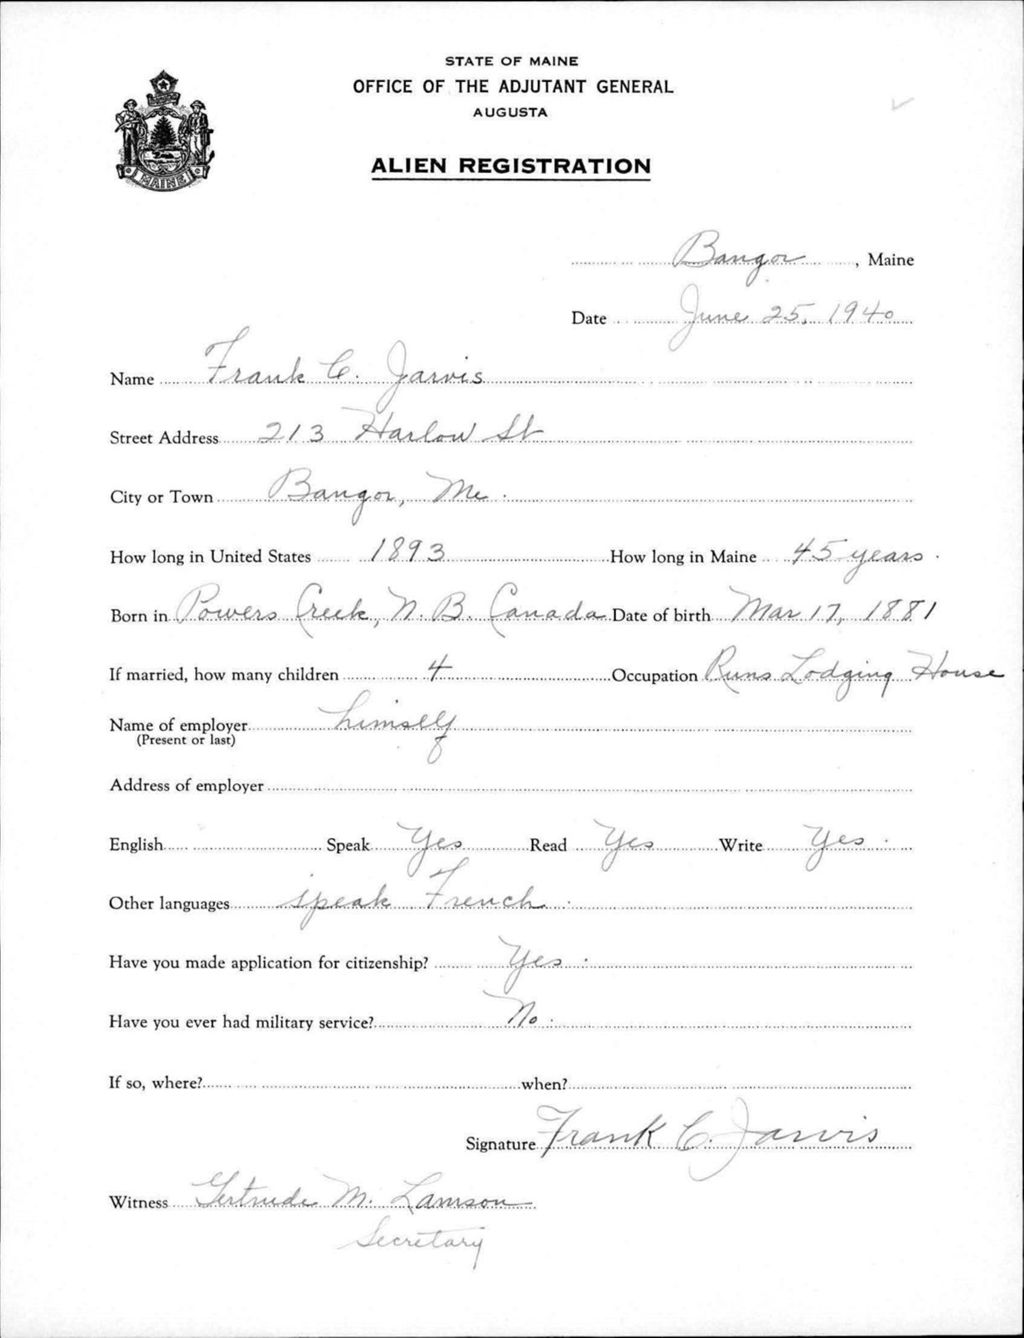 STATE OF MAINE
OFFICE OF THE ADJUTANT GENERAL
AUGUSTA
ALIEN REGISTRATION
MAINE
Bangor, Maine
Date June 25, 1940
Name Frank C. Jarvis
Street Address 213 Harlow St
City or Town Bangor, Me.
How long in United States 1893 How long in Maine 45 years.
Born in Powers Creek, N.B. Canada Date of birth Mar 17, 1881
If married, how many children 4 Occupation Runs Lodging House
Name of employer himself
(Present or last)
Address of employer
English Speak Yes Read Yes Write Yes.
Other languages speak French.
Have you made application for citizenship? Yes.
Have you ever had military service? No.
If so, where? when?
Signature Frank C. Jarvis
Witness Gertrude M. Lamson
Secretary